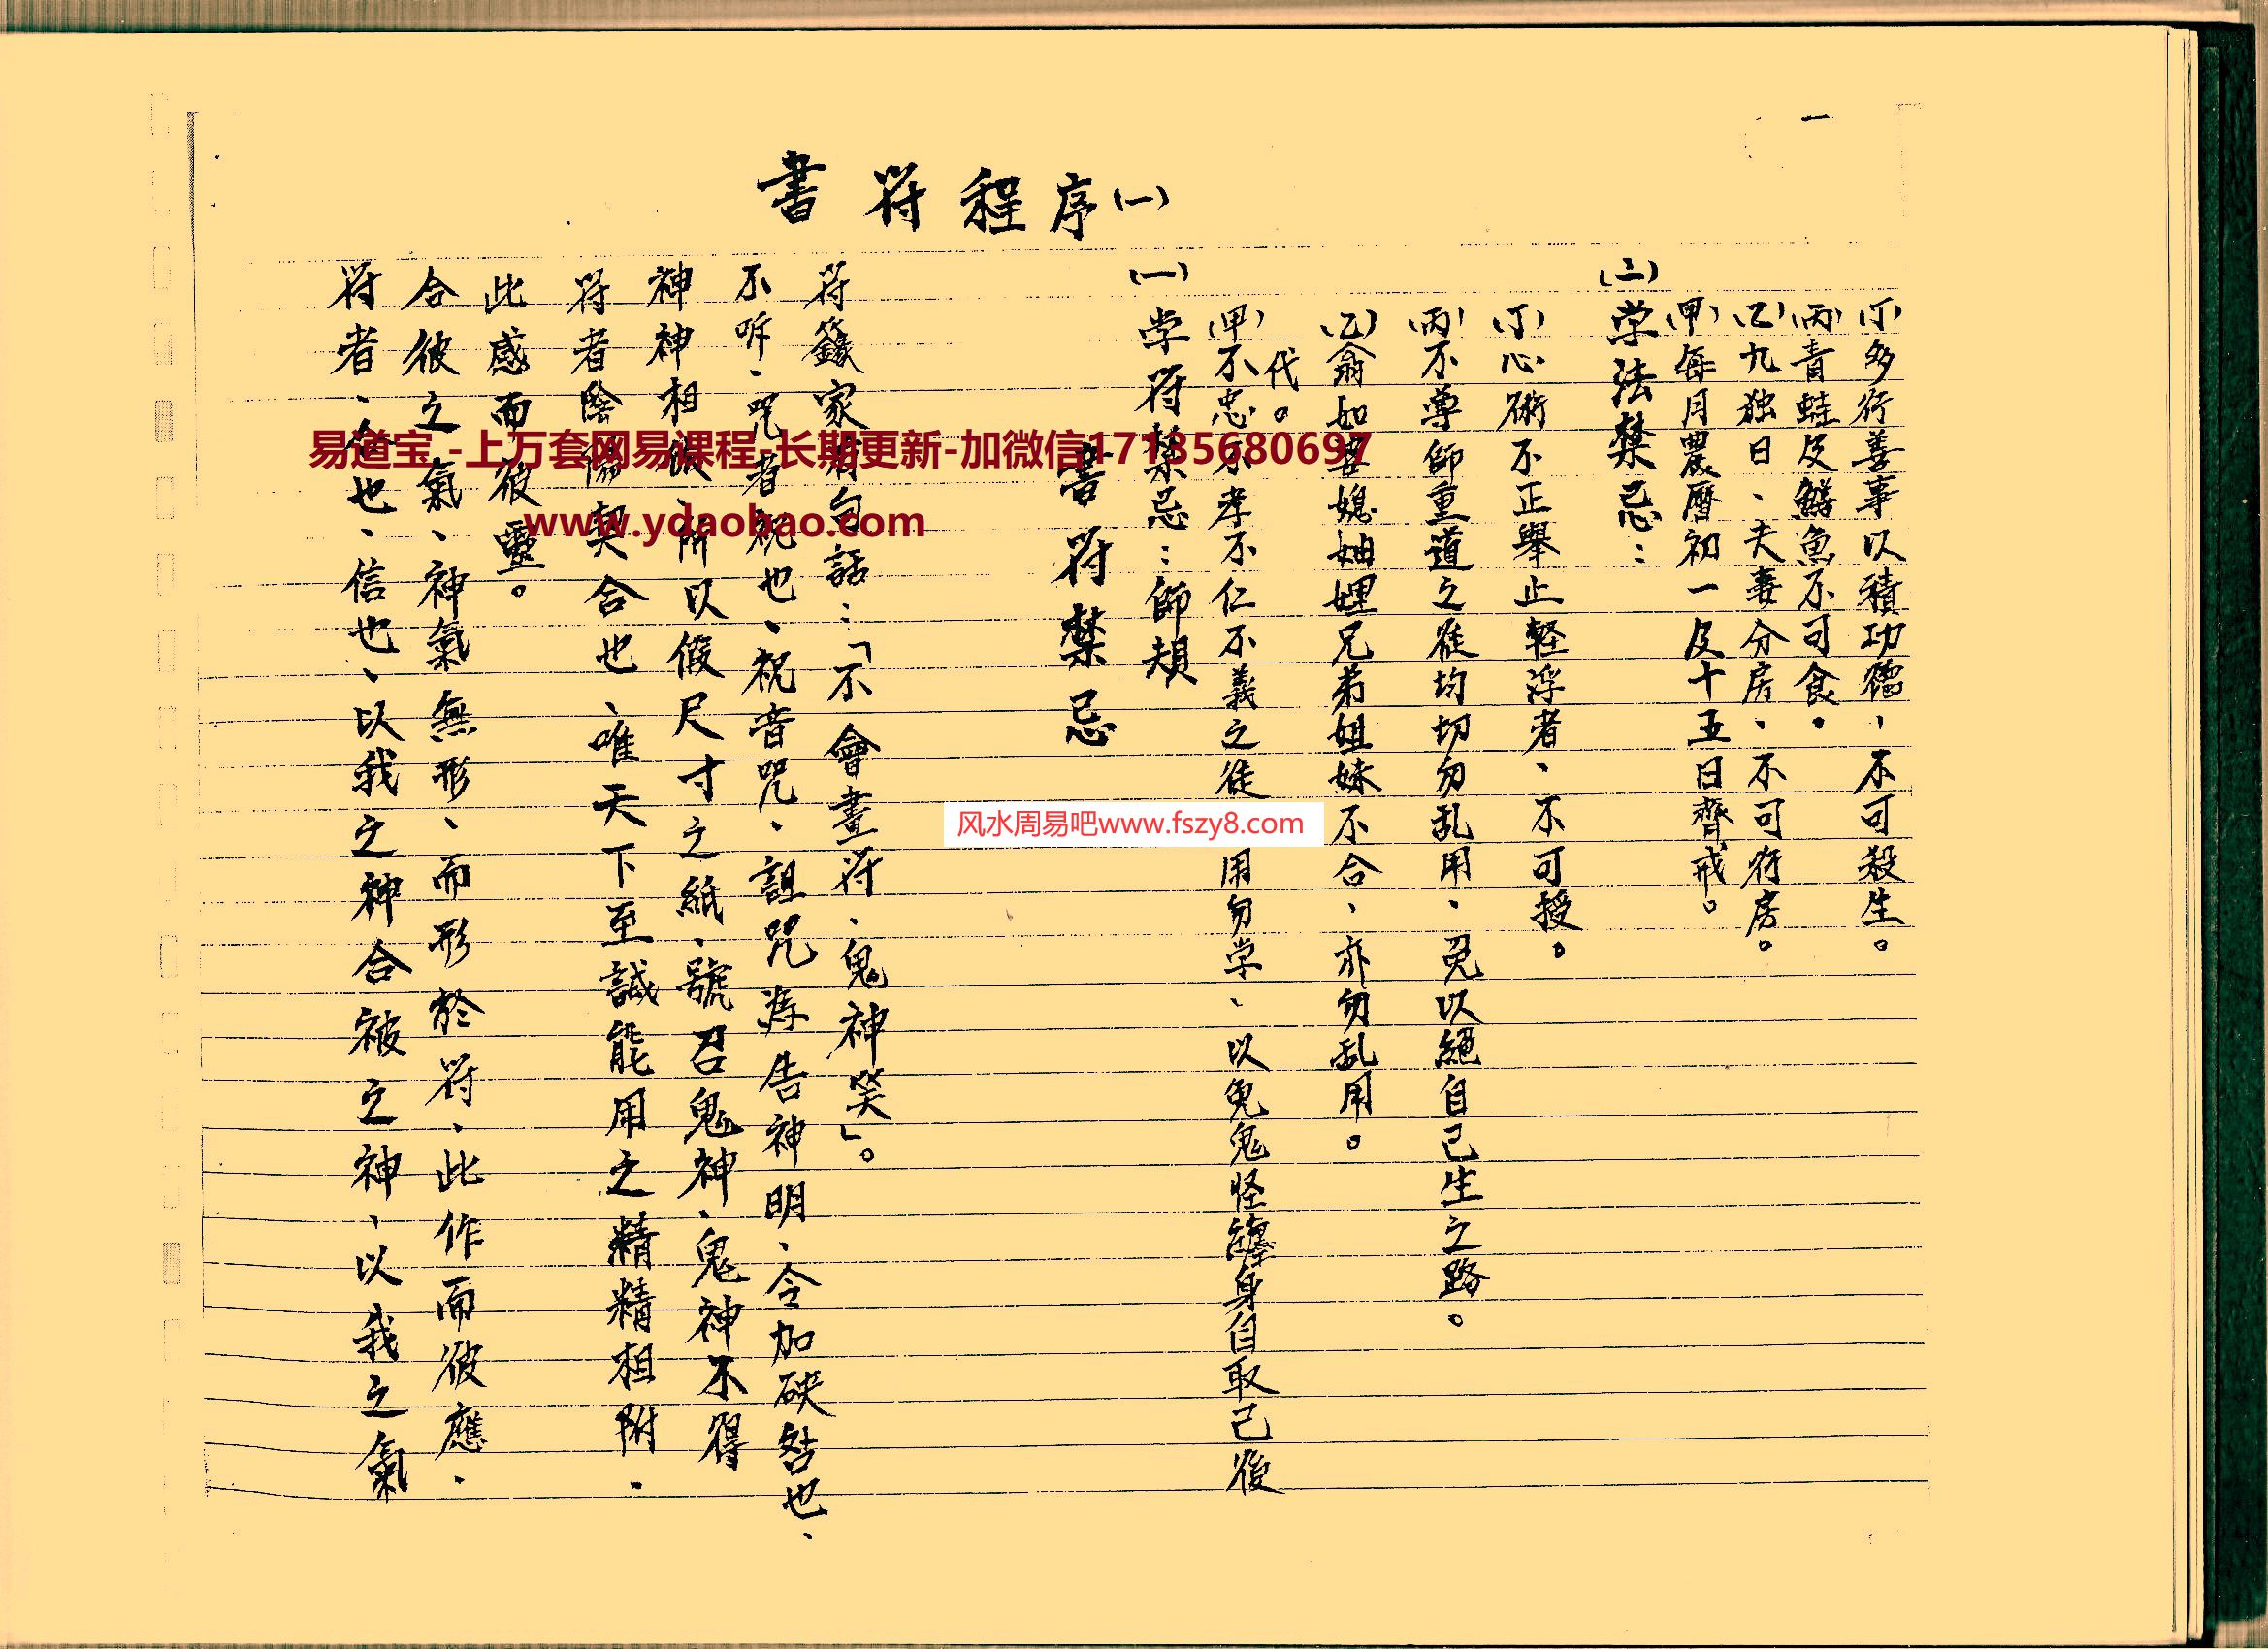 一
書符程序(一)
符者、合也、信也、以我之神合被之神、以我之氣
合彼之氣、神氣無形、而形於符、此作而彼應、
此感而彼靈。
符者陰陽契合也、唯天下至誠能用之精精相附.
神神相假、所以假尺寸之紙、號召鬼神、鬼神不得
不听、咒者祝也、祝音咒、詛咒為告神明、令加殃咎也、
符籙家有句話：「不會畫符、鬼神笑」。
書符禁忌
(一)学符禁忌：師規
(甲)不忠不孝不仁不義之徒用勿学、以免鬼鬼怪纏身自取己後
代。
(乙)翁如婆媳妯娌兄弟姐妹不合、亦勿乱用。
(丙)不尊師重道之徒均切勿乱用、免以絕自己生之路。
(丁)心術不正舉止軽浮者、不可授。
(二)学法禁忌：
(甲)每月農曆初一及十五日齊戒。
(乙)九独日、夫妻分房、不可行房。
(丙)青蛙及鱔魚不可食。
(丁)多行善事以積功德，不可殺生。
易道宝 -上万套网易课程-长期更新-加微信17135680697
www.ydaobao.com
风水周易吧www.fszy8.com